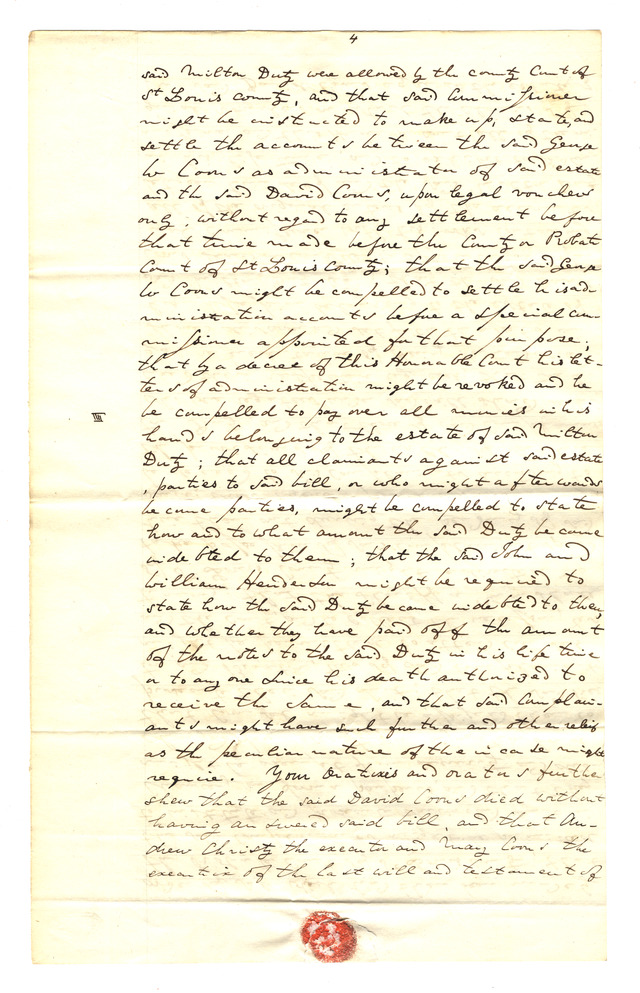 4
said Milton Duty were allowed by the county Court of
St Louis county, and that said Commissioner
might be instructed to make up, state, and
settle the accounts between the said George
W Coons as administrator of said estate
and the said David Coons, upon legal vouchers
only, without regard to any settlement before
that time made before the County or Probate
Court of St Louis County; that the said George
W Coons might be compelled to settle his ad-
ministration accounts before a special com-
missioner appointed for that purpose;
that by a decree of this Honorable Court his let-
ters of administration might be revoked and he
be compelled to pay over all monies in his
hands belonging to the estate of said Milton
Duty; that all claimants against said estate
, parties to said bill, or who might afterwards
become parties, might be compelled to state
how and to what amount the said Duty became
indebted to them; that the said John and
William Henderson might be required to
state how the said Duty became indebted to them,
and whether they have paid off the amount
of the notes to the said Duty in his life time
or to any one since his death authorized to
receive the same, and that said complain-
ants might have such further and other relief
as the peculiar nature of their case might
require. Your Oratrixis and orators further
shew that the said David Coons died without
having answered said bill, and that An-
drew Christy the executor and Mary Coons the
executrix of the last will and testament of